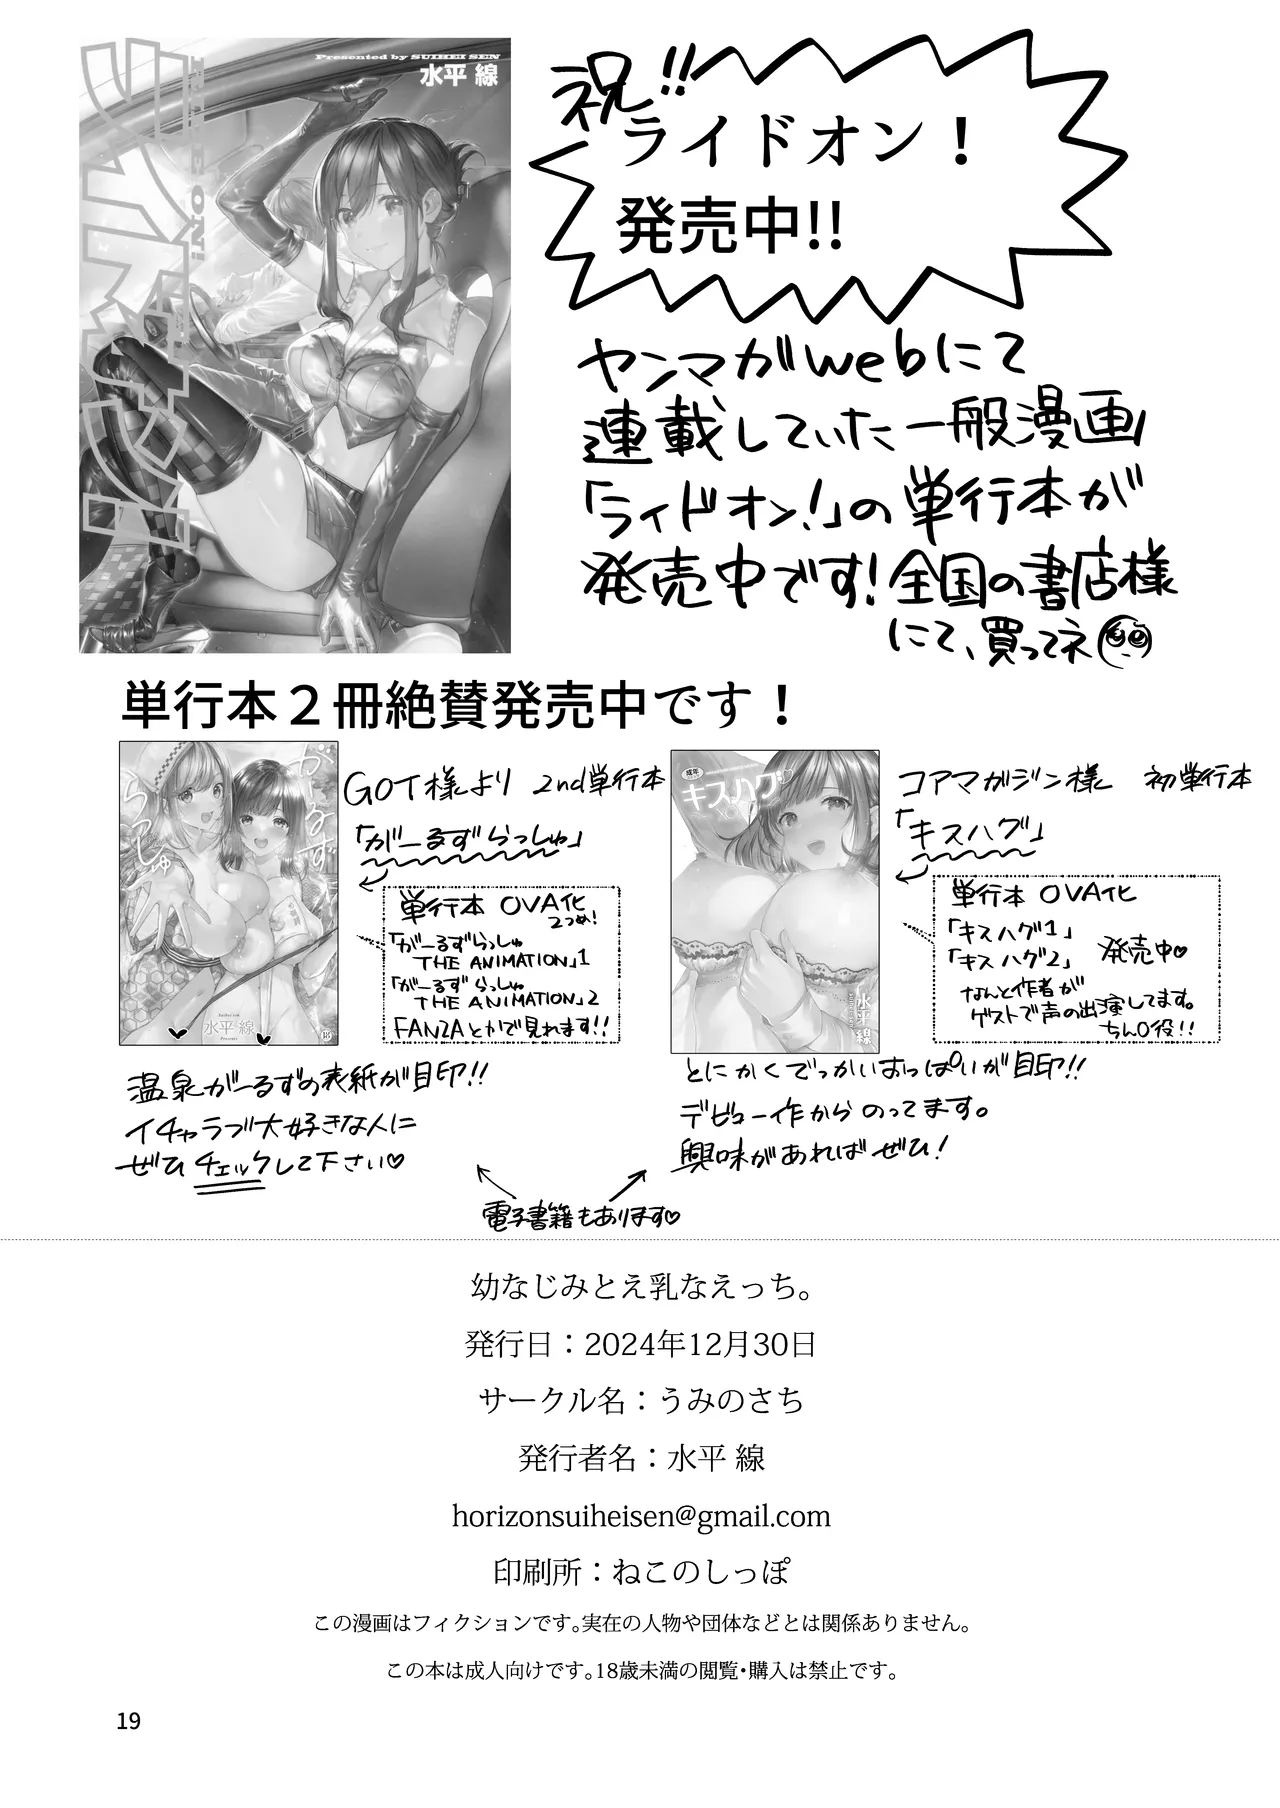 Presented by SUIHEI SEN
水平 線
RIDE ON!
ライドオン!
祝!!
ライドオン！
発売中!!
ヤンマガwebにて
連載していた一般漫画
「ライドオン!」の単行本が
発売中です!全国の書店様
にて、買ってネ
単行本２冊絶賛発売中です！
がーるず
らっしゅ
水平 線
Presents
GOT様より 2nd単行本
「がーるずらっしゅ」
単行本 OVA化
2つめ!
「がーるずらっしゅ
THE ANIMATION」1
「がーるずらっしゅ
THE ANIMATION」2
FANZAとかで見れます!!
温泉がーるずの表紙が目印!!
イチャラブ大好きな人に
ぜひチェックして下さい♡
成年
キスハグ
水平線
コアマガジン様 初単行本
「キスハグ」
単行本 OVA化
「キスハグ1」
「キスハグ2」 発売中♡
なんと作者が
ゲストで声の出演してます。
ちん〇役!!
とにかくでっかいおっぱいが目印!!
デビュー作からのってます。
興味があればぜひ!
電子書籍もあります♡
幼なじみとえ乳なえっち。
発行日：2024年12月30日
サークル名：うみのさち
発行者名：水平 線
horizonsuiheisen@gmail.com
印刷所：ねこのしっぽ
この漫画はフィクションです。実在の人物や団体などとは関係ありません。
この本は成人向けです。18歳未満の閲覧・購入は禁止です。
19